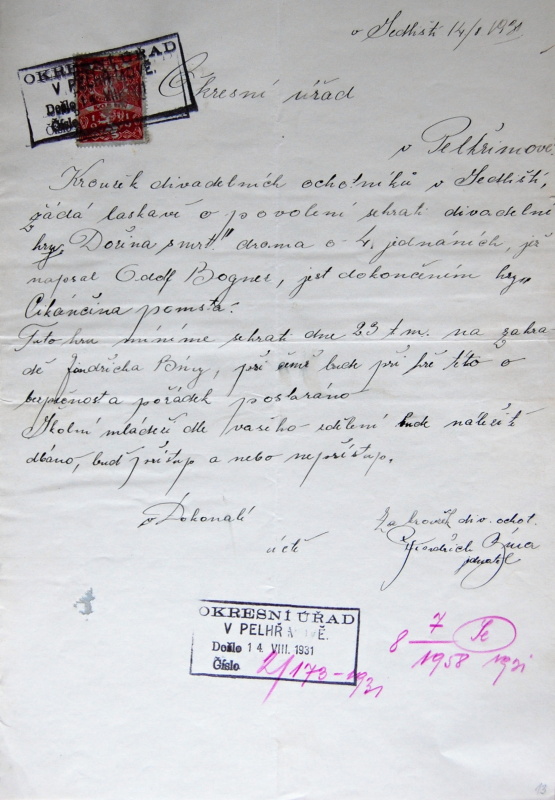 v Sedlišti 14/8 1931
OKRESNÍ ÚŘAD
V PELHŘIMOVĚ.
Došlo
Číslo
Okresní úřad
v Pelhřimově
Kroužek divadelních ochotníků v Sedlišti,
žádá laskavě o povolení sehrati divadelní
hry "Dořina smrť" drama o 4 jednáních, jež
napsal Adolf Bogner, jest dokončením hry "
Cikánčina pomsta.
Tuto hru míníme sehrati dne 23 t.m. na zahra-
dě Jindřicha Bíny, při čemž bude při hře této o
bezpečnost a pořádek postaráno
Školní mládeži dle vašeho sdělení bude náležitě
dbáno, buď přístup a nebo nepřístup.
v Dokonalé
úctě
Za kroužek div. ochot.
Jindřich Bína
jednatel
OKRESNÍ ÚŘAD
V PELHŘIMOVĚ.
Došlo 14 VIII. 1931
Číslo 2/173-1931
8 7
1958 1931
13